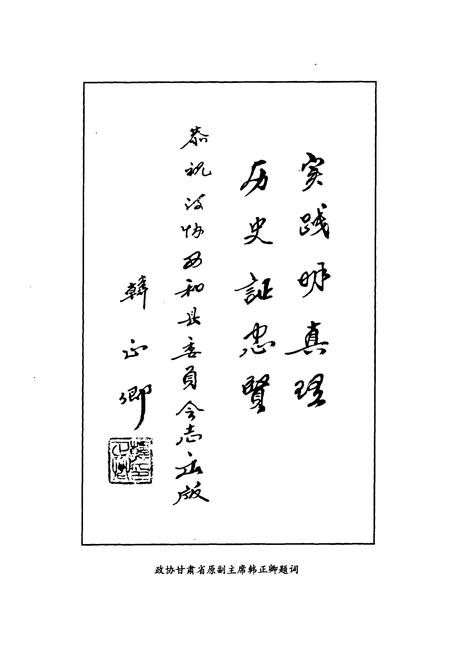 实践明真理
历史証忠贤
恭祝政协西和县委员会志出版
韩正卿
政协甘肃省原副主席韩正卿题词